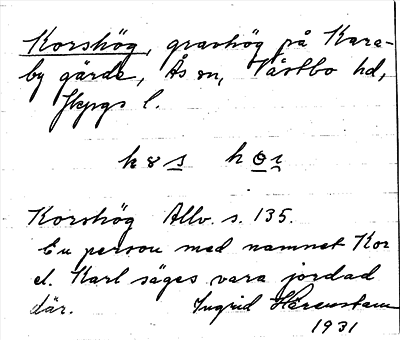 Korshög, gravhög på Kara-
by gärde, Ås sn, Västbo hd,
Jkpgs l.
Korshög Allv. s. 135.
En person med namnet Kor
el. Karl säges vara jordad
där. Ingrid
1931